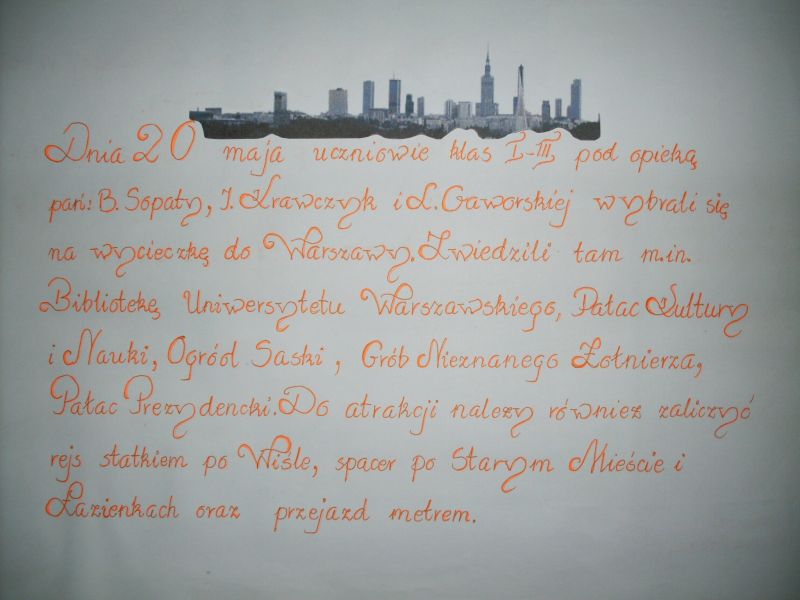 Dnia 20 maja uczniowie klas I-III pod opieką
pań: B. Sopaty, J. Krawczyk i L. Gaworskiej wybrali się
na wycieczkę do Warszawy. Zwiedzili tam m.in.
Bibliotekę Uniwersytetu Warszawskiego, Pałac Kultury
i Nauki, Ogród Saski, Grób Nieznanego Żołnierza,
Pałac Prezydencki. Do atrakcji nalezy równiez zaliczyć
rejs statkiem po Wiśle, spacer po Starym Mieście i
Łazienkach oraz przejazd metrem.